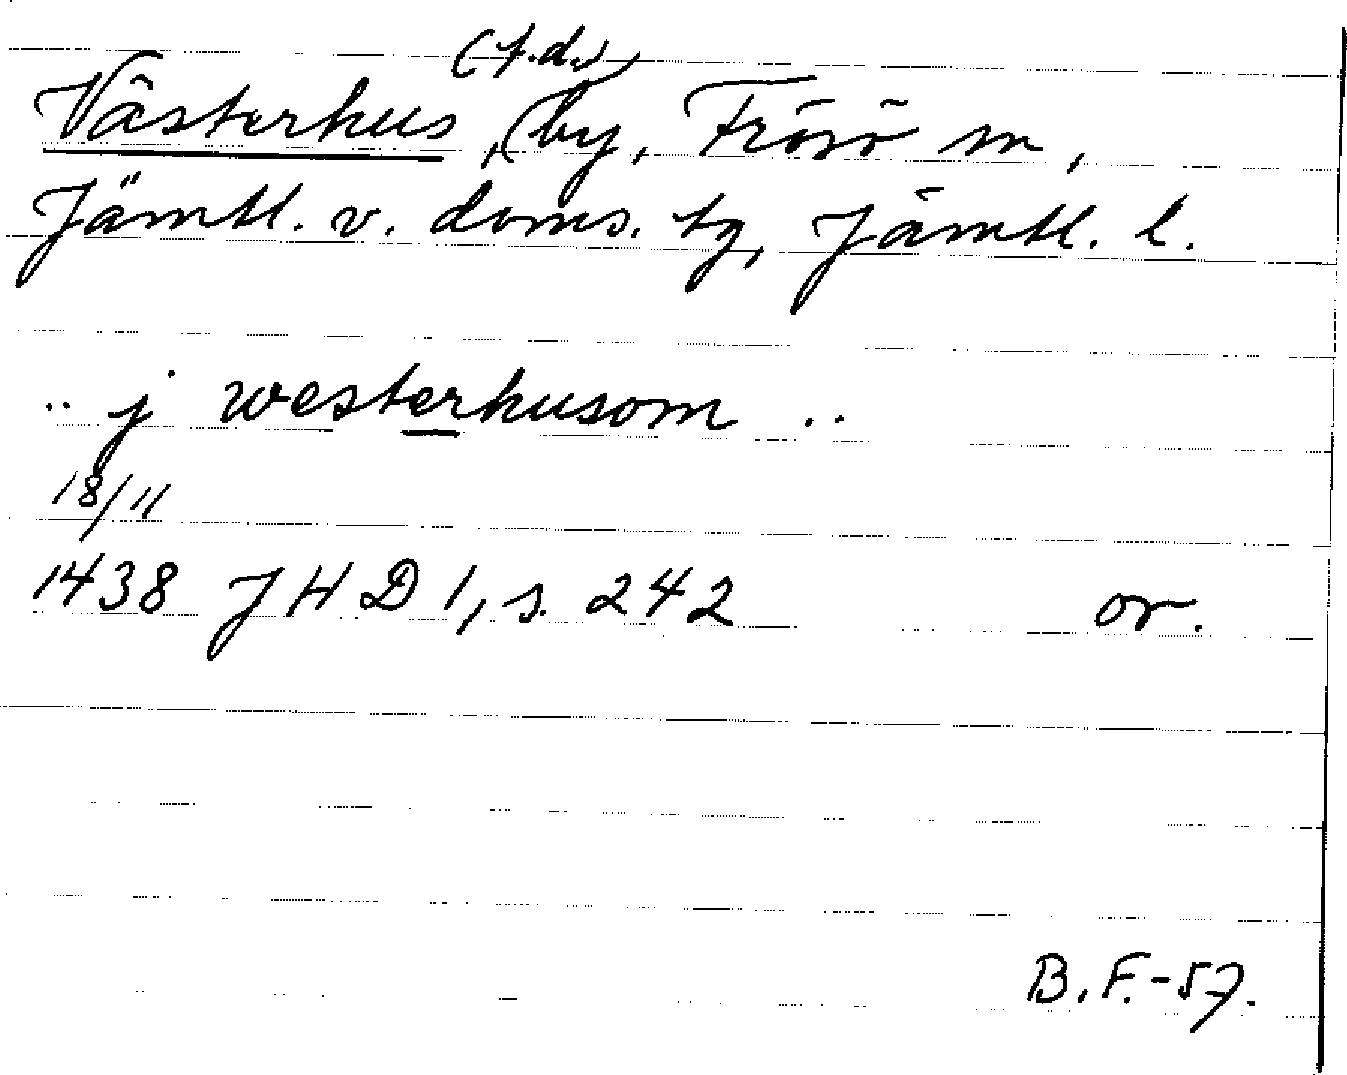 Västerhus, (f.d.) by, Frösö sn,
Jämtl. v. doms. tg, Jämtl. l.
.. j westerhusom ..
18/11
1438 JHD 1, s. 242 or.
B.F.-57.